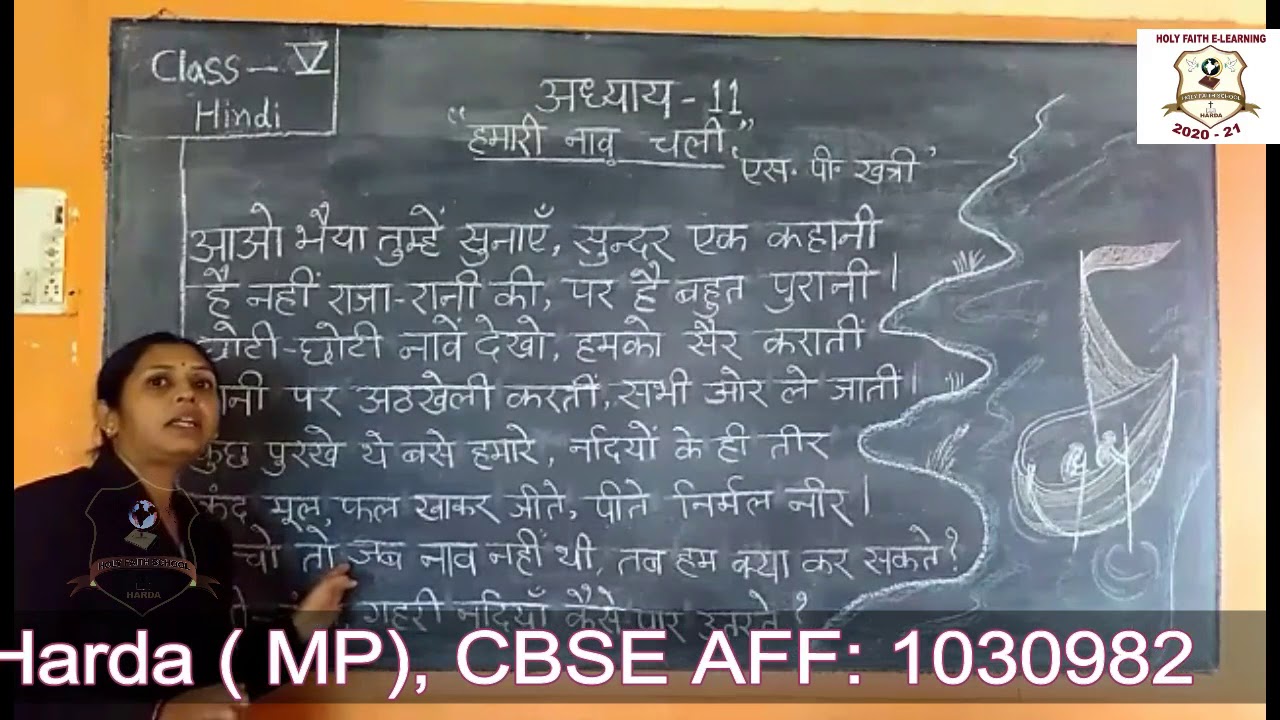 Class - V
Hindi
अध्याय - 11
"हमारी नाव चली"
'एस. पी. खत्री'
आओ भैया तुम्हें सुनाएँ, सुन्दर एक कहानी
है नहीं राजा-रानी की, पर है बहुत पुरानी।
छोटी-छोटी नावें देखो, हमको सैर करातीं
पर अठखेली करतीं, सभी ओर ले जाती।
कुछ पुरखे थे बसे हमारे, नदियों के ही तीर
कंद मूल, फल खाकर जीते, पीते निर्मल नीर।
तो जब नाव नहीं थी, तब हम क्या कर सकते?
गहरी नदियाँ कैसे पार उतरते?
HOLY FAITH E-LEARNING
HOLY FAITH SCHOOL
HARDA
2020 - 21
HOLY FAITH SCHOOL
HARDA
Harda ( MP), CBSE AFF: 1030982